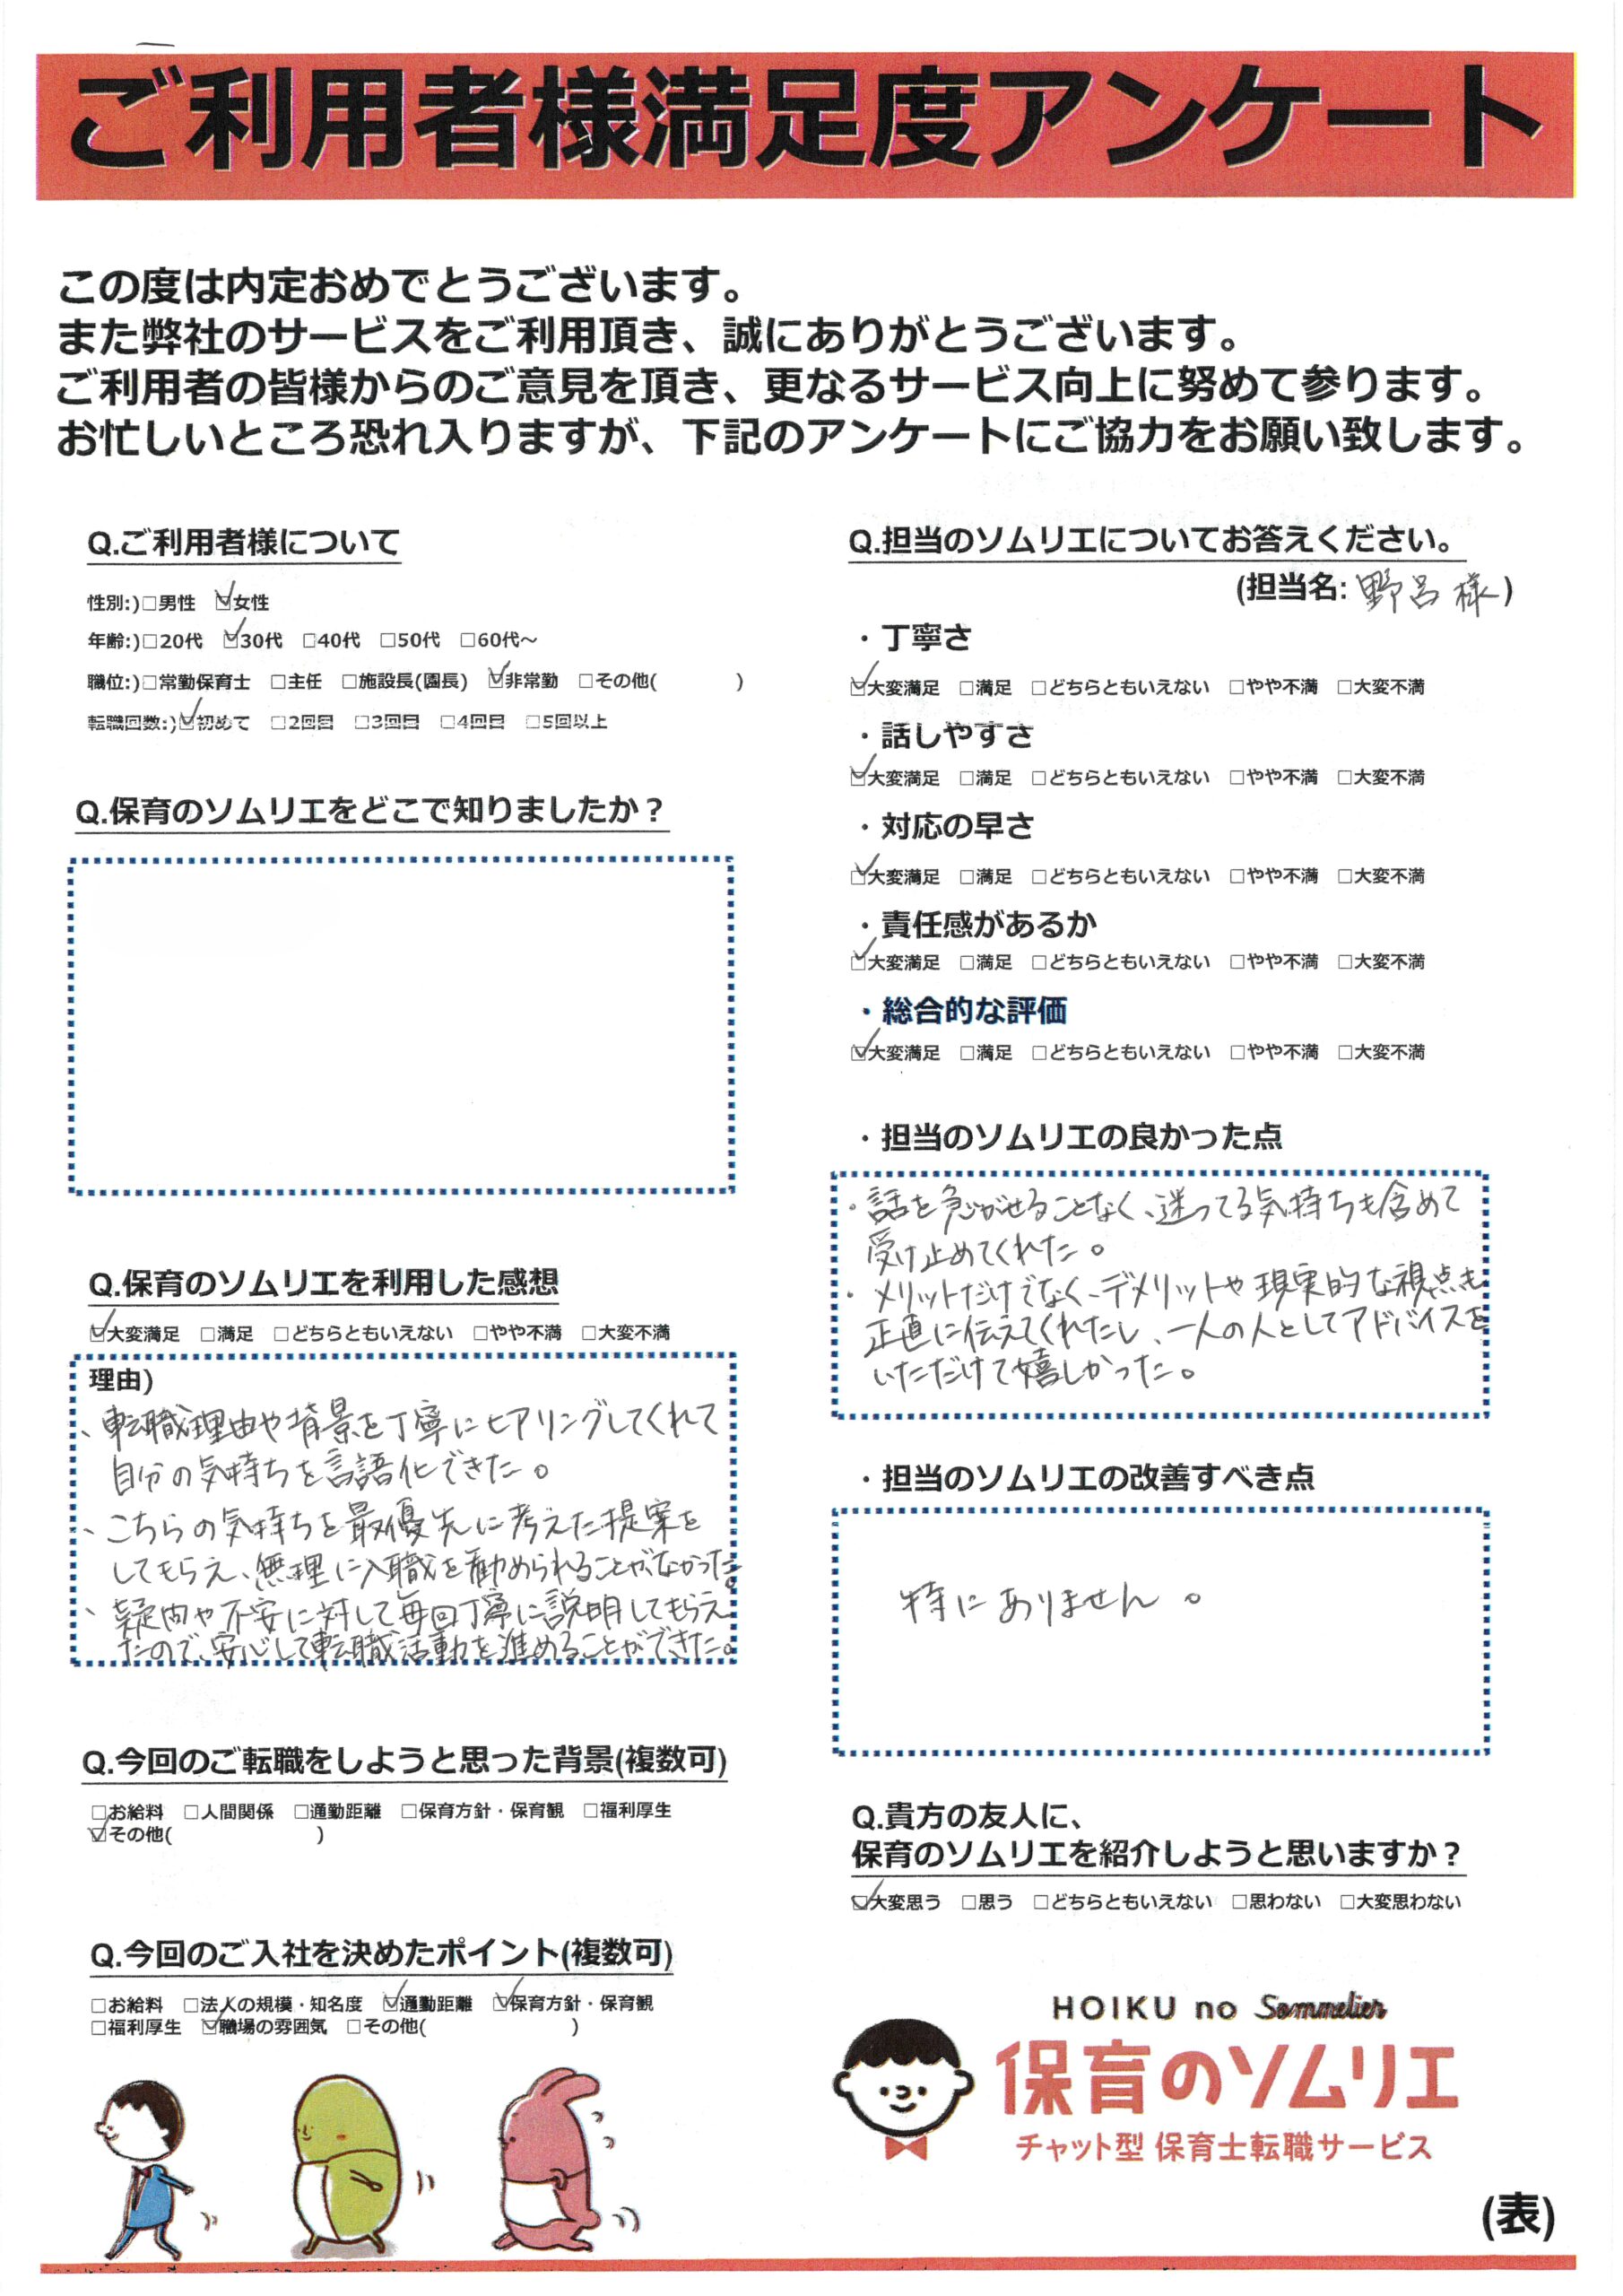 ご利用者様満足度アンケート
この度は内定おめでとうございます。
また弊社のサービスをご利用頂き、誠にありがとうございます。
ご利用者の皆様からのご意見を頂き、更なるサービス向上に努めて参ります。
お忙しいところ恐れ入りますが、下記のアンケートにご協力をお願い致します。
Q.ご利用者様について
性別:)□男性 ☑女性
年齢:)□20代 ☑30代 □40代 □50代 □60代～
職位:)□常勤保育士 □主任 □施設長(園長) ☑非常勤 □その他( )
転職回数:)☑初めて □2回目 □3回目 □4回目 □5回以上
Q.保育のソムリエをどこで知りましたか？
Q.保育のソムリエを利用した感想
☑大変満足 □満足 □どちらともいえない □やや不満 □大変不満
理由)
、転職理由や背景を丁寧にヒアリングしてくれて
自分の気持ちを言語化できた。
、こちらの気持ちを最優先に考えた提案を
してもらえ、無理に入職を勧められることがなかった。
、疑問や不安に対して毎回丁寧に説明してもらえ
たので、安心して転職活動を進めることができた。
Q.今回のご転職をしようと思った背景(複数可)
□お給料 □人間関係 □通勤距離 □保育方針・保育観 □福利厚生
☑その他( )
Q.今回のご入社を決めたポイント(複数可)
□お給料 □法人の規模・知名度 ☑通勤距離 ☑保育方針・保育観
□福利厚生 ☑職場の雰囲気 □その他( )
Q.担当のソムリエについてお答えください。
(担当名: 野呂様)
・丁寧さ
☑大変満足 □満足 □どちらともいえない □やや不満 □大変不満
・話しやすさ
☑大変満足 □満足 □どちらともいえない □やや不満 □大変不満
・対応の早さ
☑大変満足 □満足 □どちらともいえない □やや不満 □大変不満
・責任感があるか
☑大変満足 □満足 □どちらともいえない □やや不満 □大変不満
・総合的な評価
☑大変満足 □満足 □どちらともいえない □やや不満 □大変不満
・担当のソムリエの良かった点
・話を急がせることなく、迷ってる気持ちも含めて
受け止めてくれた。
・メリットだけでなく、デメリットや現実的な視点も
正直に伝えてくれたし、一人の人としてアドバイスを
いただけて嬉しかった。
・担当のソムリエの改善すべき点
特にありません。
Q.貴方の友人に、
保育のソムリエを紹介しようと思いますか？
☑大変思う □思う □どちらともいえない □思わない □大変思わない
HOIKU no Sommelier
保育のソムリエ
チャット型 保育士転職サービス
(表)